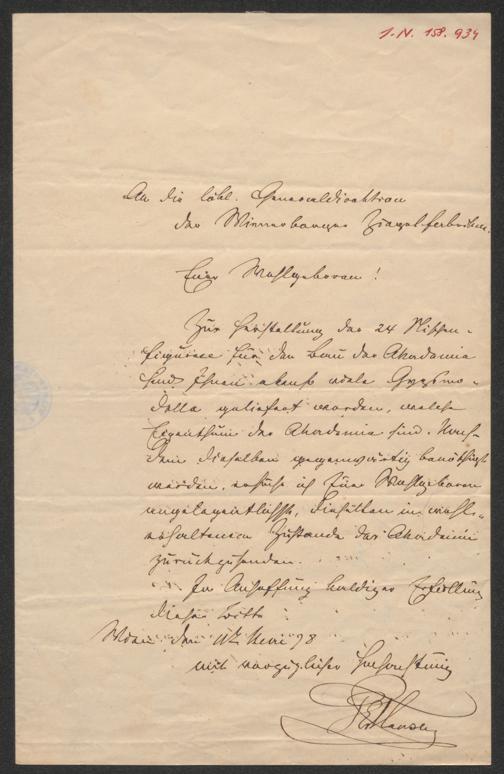 I.N. 158.934
An die löbl. Generaldirektion
der Wienerberger Ziegelfabriken.
Euer Wohlgeboren!
Zur Herstellung der 24 Nischen-
figuren für den Bau der Akademie
sind Ihnen ebenso viele Gypsmo-
delle geliefert worden, welche
Eigenthum der Akademie sind. Nach-
dem dieselben gegenwärtig benöthigt
werden, ersuche ich Euer Wohlgeboren
angelegentlichst, dieselben in wohl-
erhaltenem Zustande der Akademie
zurückzusenden.
In Anhoffung baldiger Erfüllung
dieser Bitte
Wien den 11ten 78
mit vorzüglicher Hochachtung
Hansen